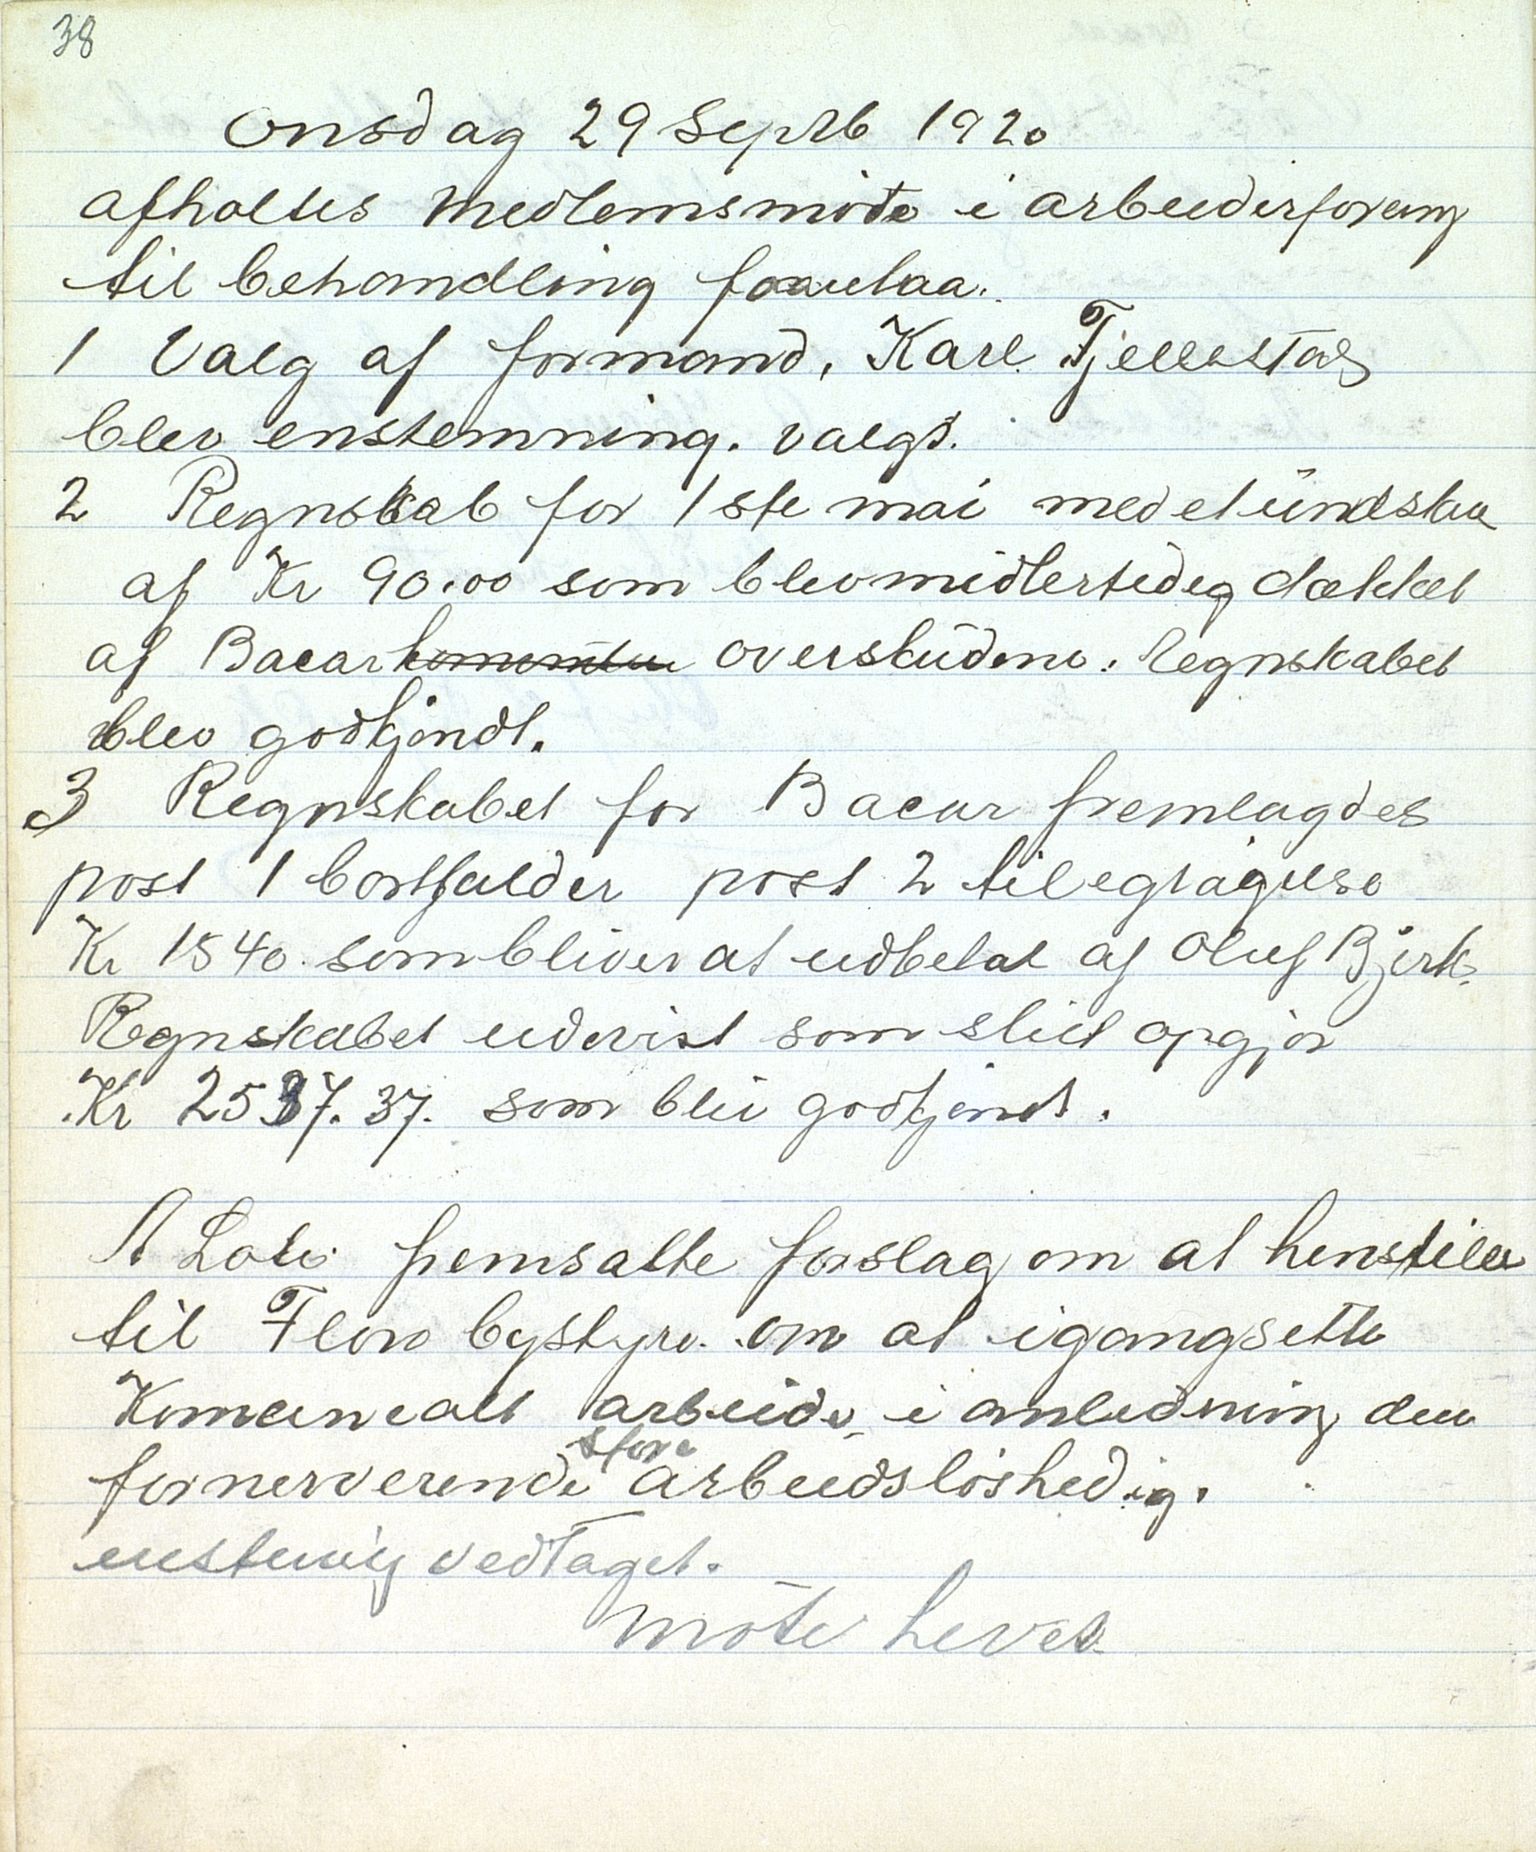 38
Onsdag 29 Septb 1920
afholtes medlemsmöde i arbeiderforening
til behandling forelaa.
1 Valg af formand, Karl Fjellestad
blev enstemning. valgt.
2 Regnskab for 1ste mai med et ündsku
af Kr 90.00 som blev midlertedeg dækket
af Bacar overskúdene. Regnskabet
blev godkjendt.
3 Regnskabet for Bacar fremlagdes
post 1 bortfalder post 2 til
Kr 1540. som bliver at udbetat af Oluf Bjerk.
Regnskabet udvist som slut opgjør
Kr 2537.37. som blev godkjendt.
A Lote fremsatte forslag om at henstiler
til Florø bystyre. om at igangsette
Komunealt arbeide, i anledning den
fornerverende store arbeidsløshedig.
enstemig vedtaget.
möte hevet.